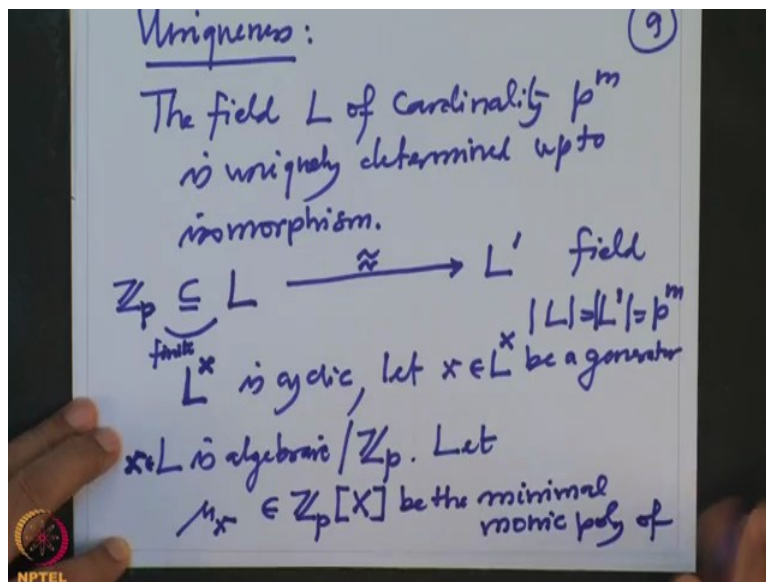 Uniqueness:
9
The field L of Cardinality p^m
is uniquely determined upto
isomorphism.
ℤ_p ⊆ L ⟶^≈ L' field
finite
|L|=|L'|=p^m
L^× is cyclic, let x ∈ L^× be a generator
x∈L is algebraic /ℤ_p. Let
μ_x ∈ ℤ_p[X] be the minimal
monic poly of
NPTEL